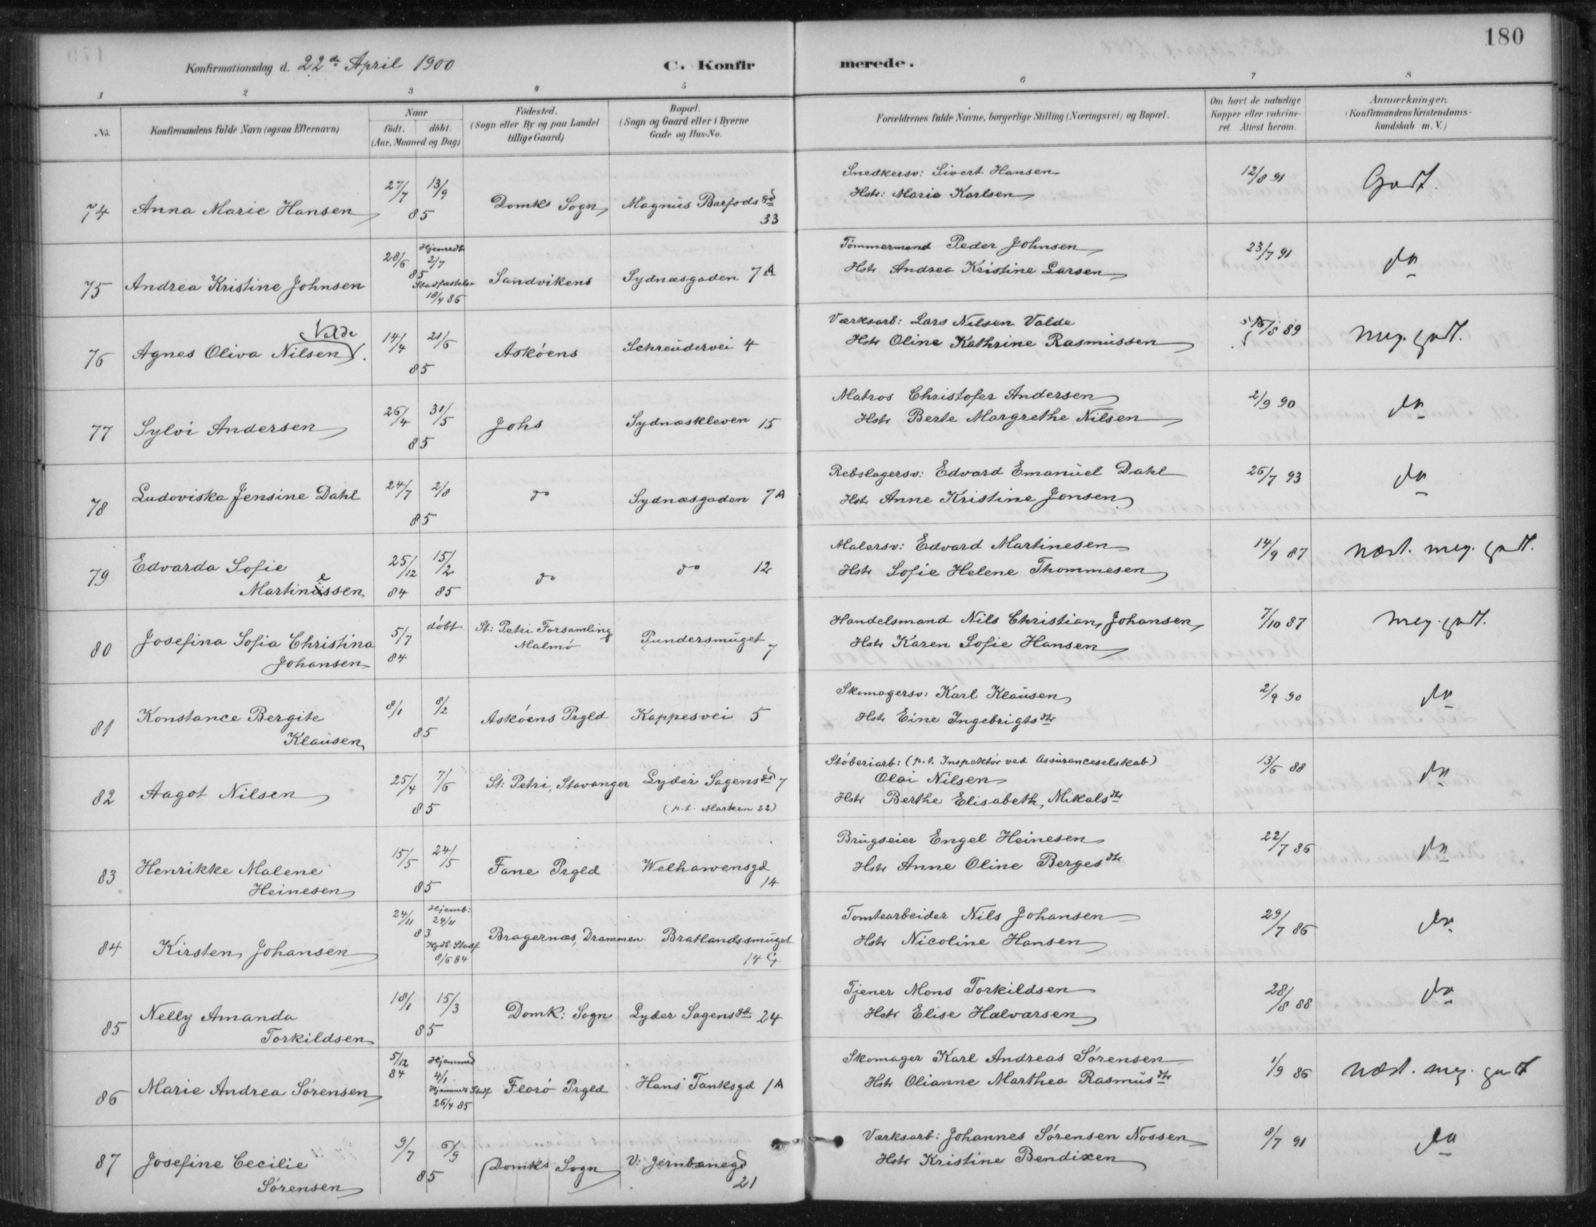 180
Konfirmationsdag d. 22de April 1900
C. Konfirmerede.
1 2 3 4 5 6 7 8
No.
Konfirmandens fulde Navn (ogsaa Efternavn)
Naar
født. døbt.
(Aar, Maaned og Dag)
Fødested.
(Sogn eller By og paa Landet tillige Gaard)
Bopæl.
(Sogn og Gaard eller i Byerne Gade og Hus-No.
Forældrenes fulde Navne, borgerlige Stilling (Næringsvei) og Bopæl.
Om havt de naturlige Kopper eller vakcineret Attest herom.
Anmærkninger.
(Konfirmandens Kristendomskundskab m. V.)
74 Anna Marie Hansen 27/7 13/9 85 Domks Sogn Magnus Barfodsgd 33
Snedkersv: Sivert Hansen
Hstr: Marie Karlsen
12/8 91 Godt.
75 Andrea Kristine Johnsen 28/6 Hjemedt 2/7 85 Stadfæstelse 18/4 86 Sandvikens Sydnæsgaden 7A
Tømmermand Peder Johnsen
Hstr Andrea Kristine Larsen
23/7 91 do
76 Agnes Oliva Nilsen Valde 14/4 21/6 85 Askøens Schreudervei 4
Værksarb: Lars Nilsen Valde
Hstr Oline Kathrine Rasmussen
89 meg. godt.
77 Sylvi Andersen 26/4 31/5 85 Johs Sydnæskleven 15
Matros Christofer Andersen
Hstr Berte Margrethe Nilsen
2/9 90 do
78 Ludoviska Jensine Dahl 24/7 2/8 85 do Sydnæsgaden 7A
Rebslagersv: Edvard Emanuel Dahl
Hstr Anne Kristine Jonsen
26/7 93 do
79 Edvarda Sofie Martinessen 25/12 84 15/2 85 do do 12
Malersv: Edvard Martinesen
Hstr Sofie Helene Thommesen
14/9 87 næst. meg. godt.
80 Josefina Sofia Christina Johansen 5/7 84 døbt St: Petri Forsamling Malmø Pundersmuget 7
Handelsmand Nils Christian Johansen
Hstr Karen Sofie Hansen
7/10 87 meg. godt.
81 Konstance Bergite Klausen 8/1 8/2 85 Askøens Prgld Kappesvei 5
Skomagersv: Karl Klausen
Hstr Eine Ingebrigtsdtr
2/9 90 do
82 Aagot Nilsen 25/4 7/6 85 St: Petri, Stavanger Lyder Sagensgd 7
(p.t. Marken 22)
Støberiarb: (p.t. Inspektør ved Assuranceselskab)
Olai Nilsen
Hstr Berthe Elisabeth Mikalsdtr
13/6 88 do
83 Henrikke Malene Heinesen 15/5 24/5 85 Fane Prgld Welhavensgd 14
Brugseier Engel Heinesen
Hstr Anne Oline Bergesdtr
22/7 86 do
84 Kirsten Johansen 24/11 Hjemb: 24/11 83 Stadf 8/6 84 Bragernæs, Drammen Bratlandssmuget 14
Tomtearbeider Nils Johansen
Hstr Nicoline Hansen
29/7 86 do
85 Nelly Amanda Torkildsen 18/1 15/3 85 Domk: Sogn Lyder Sagensgd 24
Tjener Mons Torkildsen
Hstr Elise Halvorsen
28/8 88 do
86 Marie Andrea Sørensen 5/12 84 Hjemmed 4/1 Hjemmedt Stadf 26/4 85 Florø Prgld Hans Tanksgd 1A
Skomager Karl Andreas Sørensen
Hstr Olianne Marthea Rasmusdtr
1/9 86 næst. meg. godt
87 Josefine Cecilie Sørensen 9/7 6/9 85 Domks Sogn V: Jernbanegd 21
Værksarb: Johannes Sørensen Nossen
Hstr Kristine Bendixen
8/7 91 do